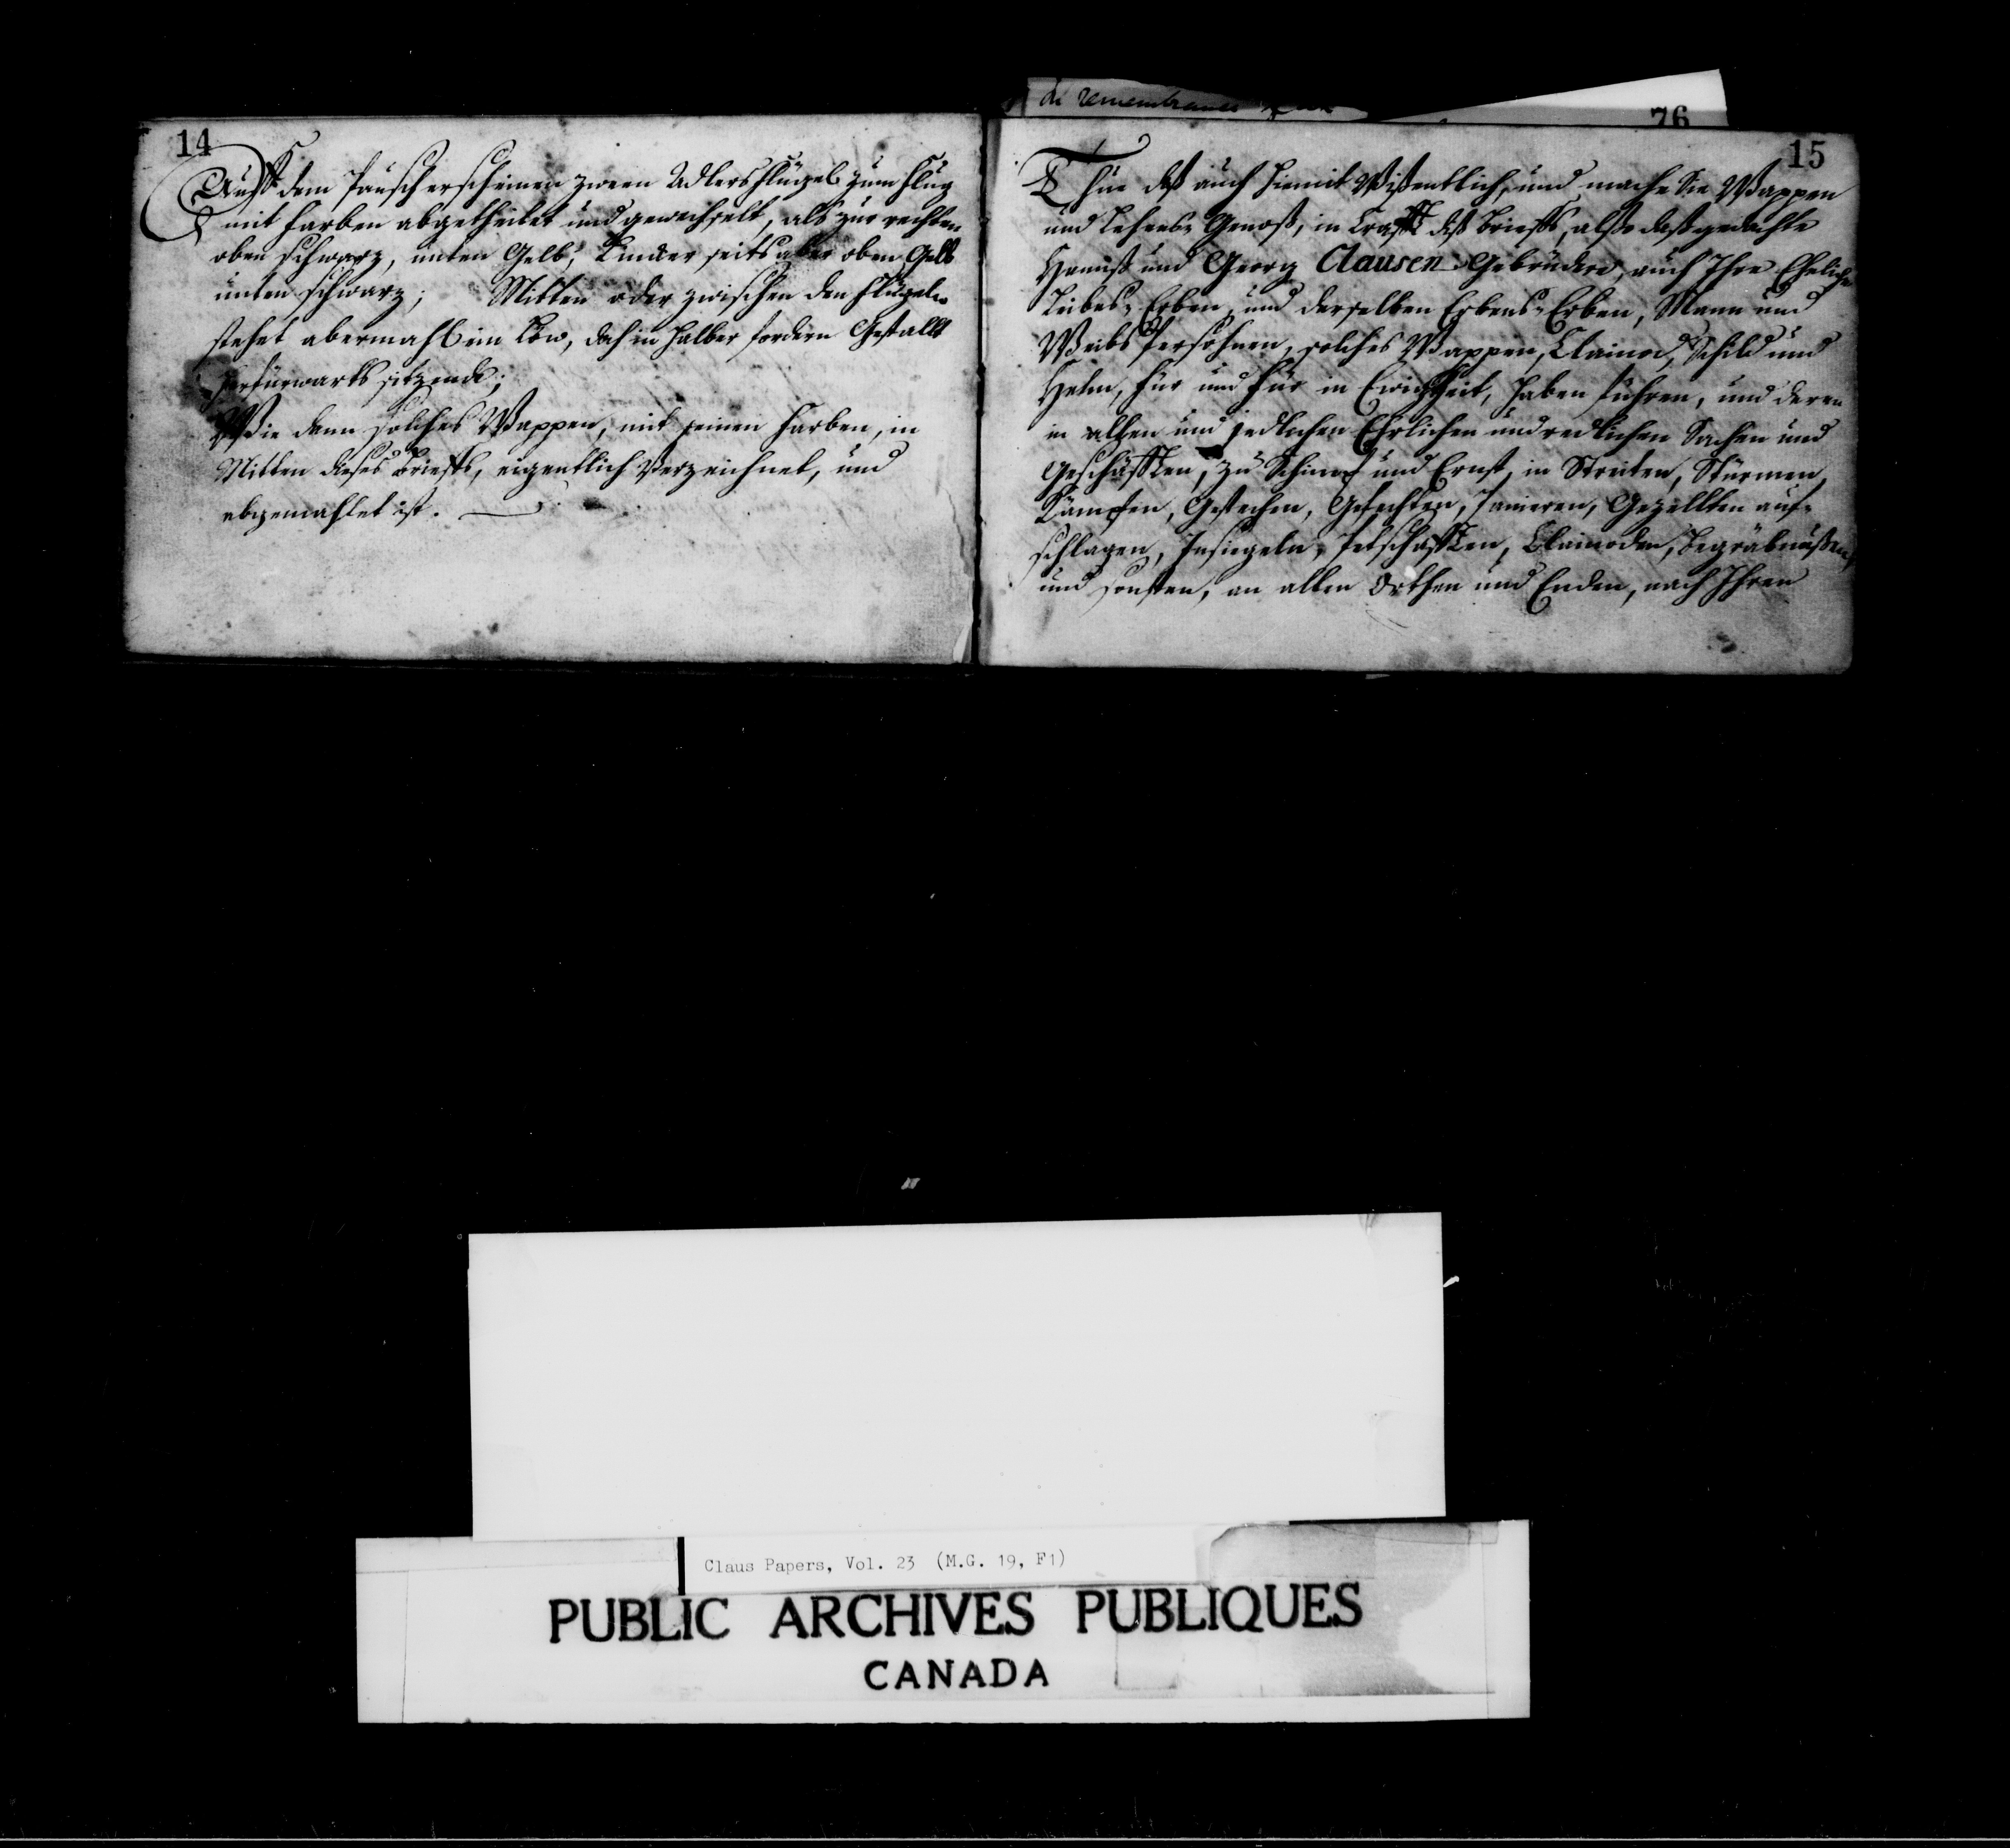 de remembrance
76
14
Auß dem Pausch erscheinen zween Adlersflügel zum flug
mit farben abgetheilet und gewechselt, als zur rechten
oben schwarz, unten Gelb; Linker seits aber oben Gelb
unten schwarz; Mitten oder zwischen den flügeln
stehet abermahl ein Löw, doch in halber fordern Gestallt
herfürwarts sitzende;
Wie dann solches Wappen, mit seinen farben, in
Mitten dieses briefs, eigentlich Verzeichnet, und
abgemahlet ist.
15
Thue das auch hiemit Wißentlich, und mache Sie Wappen
und Lehens-Genoß, in Crafft diß briefs, alßo daß gedachte
Hannß und Georg Clausen Gebrüdere, auch Ihre Eheliche
Leibes-Erben, und derselben Erbens-Erben, Mann und
Weibs Persohnen, solches Wappen, Clainod, Schild und
Helm, für und für in Ewigkeit, haben führen, und deren
in allen und jedlichen Ehrlichen und redlichen Sachen und
Geschäfften, zu Schimpf und Ernst, in Streiten, Stürmen,
Kämpfen, Gestechen, Gefechten, Panieren, Gezellten auf-
schlagen, Insiegeln, Petschafften, Clainoden, Begräbnüßen,
und sonsten, an allen Orthen und Enden, nach Ihren
Claus Papers, Vol. 23 (M.G. 19, F1)
PUBLIC ARCHIVES PUBLIQUES
CANADA